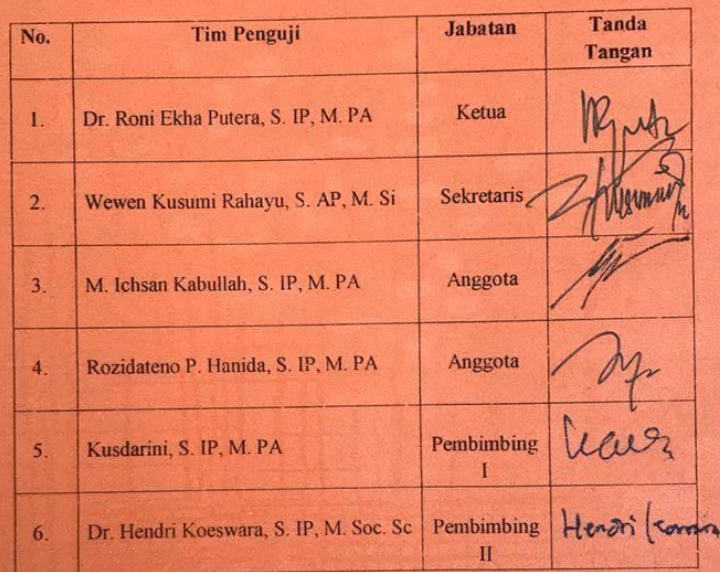 No. Tim Penguji Jabatan Tanda
Tangan
1. Dr. Roni Ekha Putera, S. IP, M. PA Ketua
2. Wewen Kusumi Rahayu, S. AP, M. Si Sekretaris
3. M. Ichsan Kabullah, S. IP, M. PA Anggota
4. Rozidateno P. Hanida, S. IP, M. PA Anggota
5. Kusdarini, S. IP, M. PA Pembimbing
I
6. Dr. Hendri Koeswara, S. IP, M. Soc. Sc Pembimbing Hendri
II